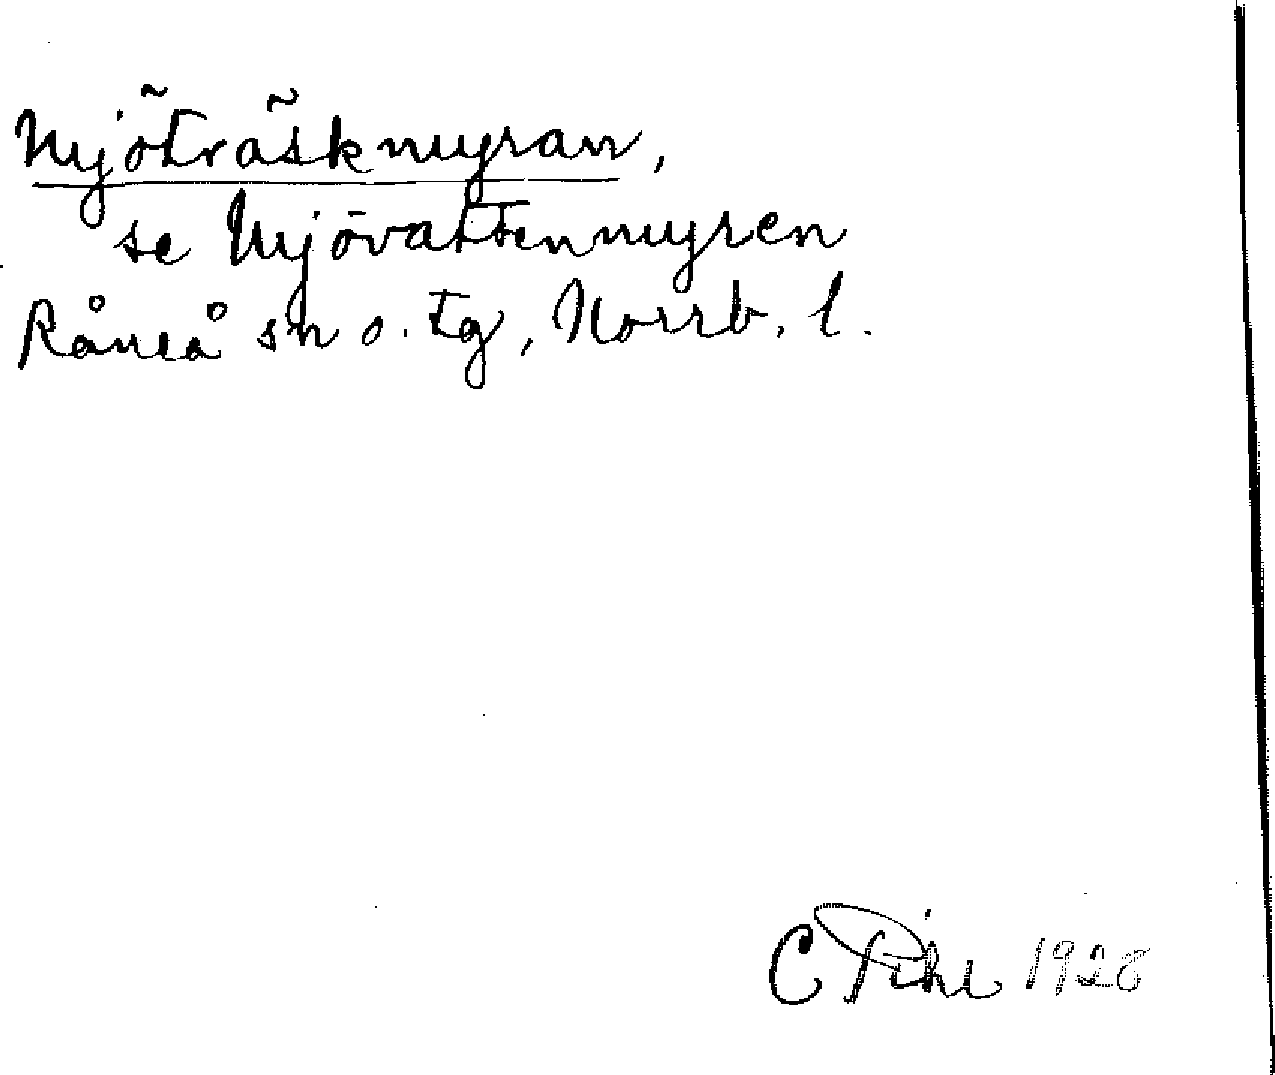 Mjöträskmyran,
se Mjövattenmyren
Råneå sn o. tg, Norrb. l.
C Pihl 1928